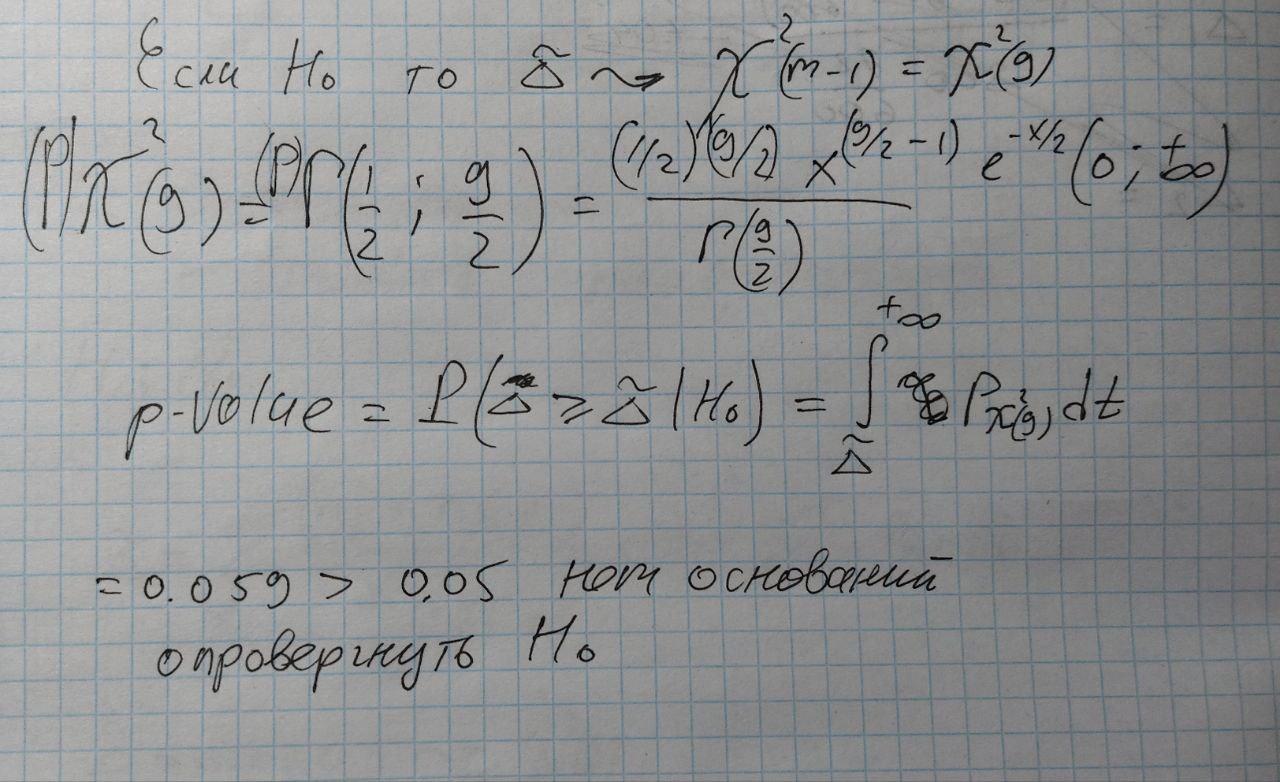 Если H₀ то Δ̃ ⇝ χ²(m-1) = χ²(9)
(P)χ²(9) = (P)Γ(1/2 ; 9/2) = (1/2)^(9/2) x^(9/2 - 1) e^(-x/2) / Γ(9/2) (0 ; +∞)
p-value = P(Δ ≥ Δ̃ | H₀) = ∫_Δ̃^+∞ P_χ²(9) dt
= 0.059 > 0.05 нет оснований
опровергнуть H₀